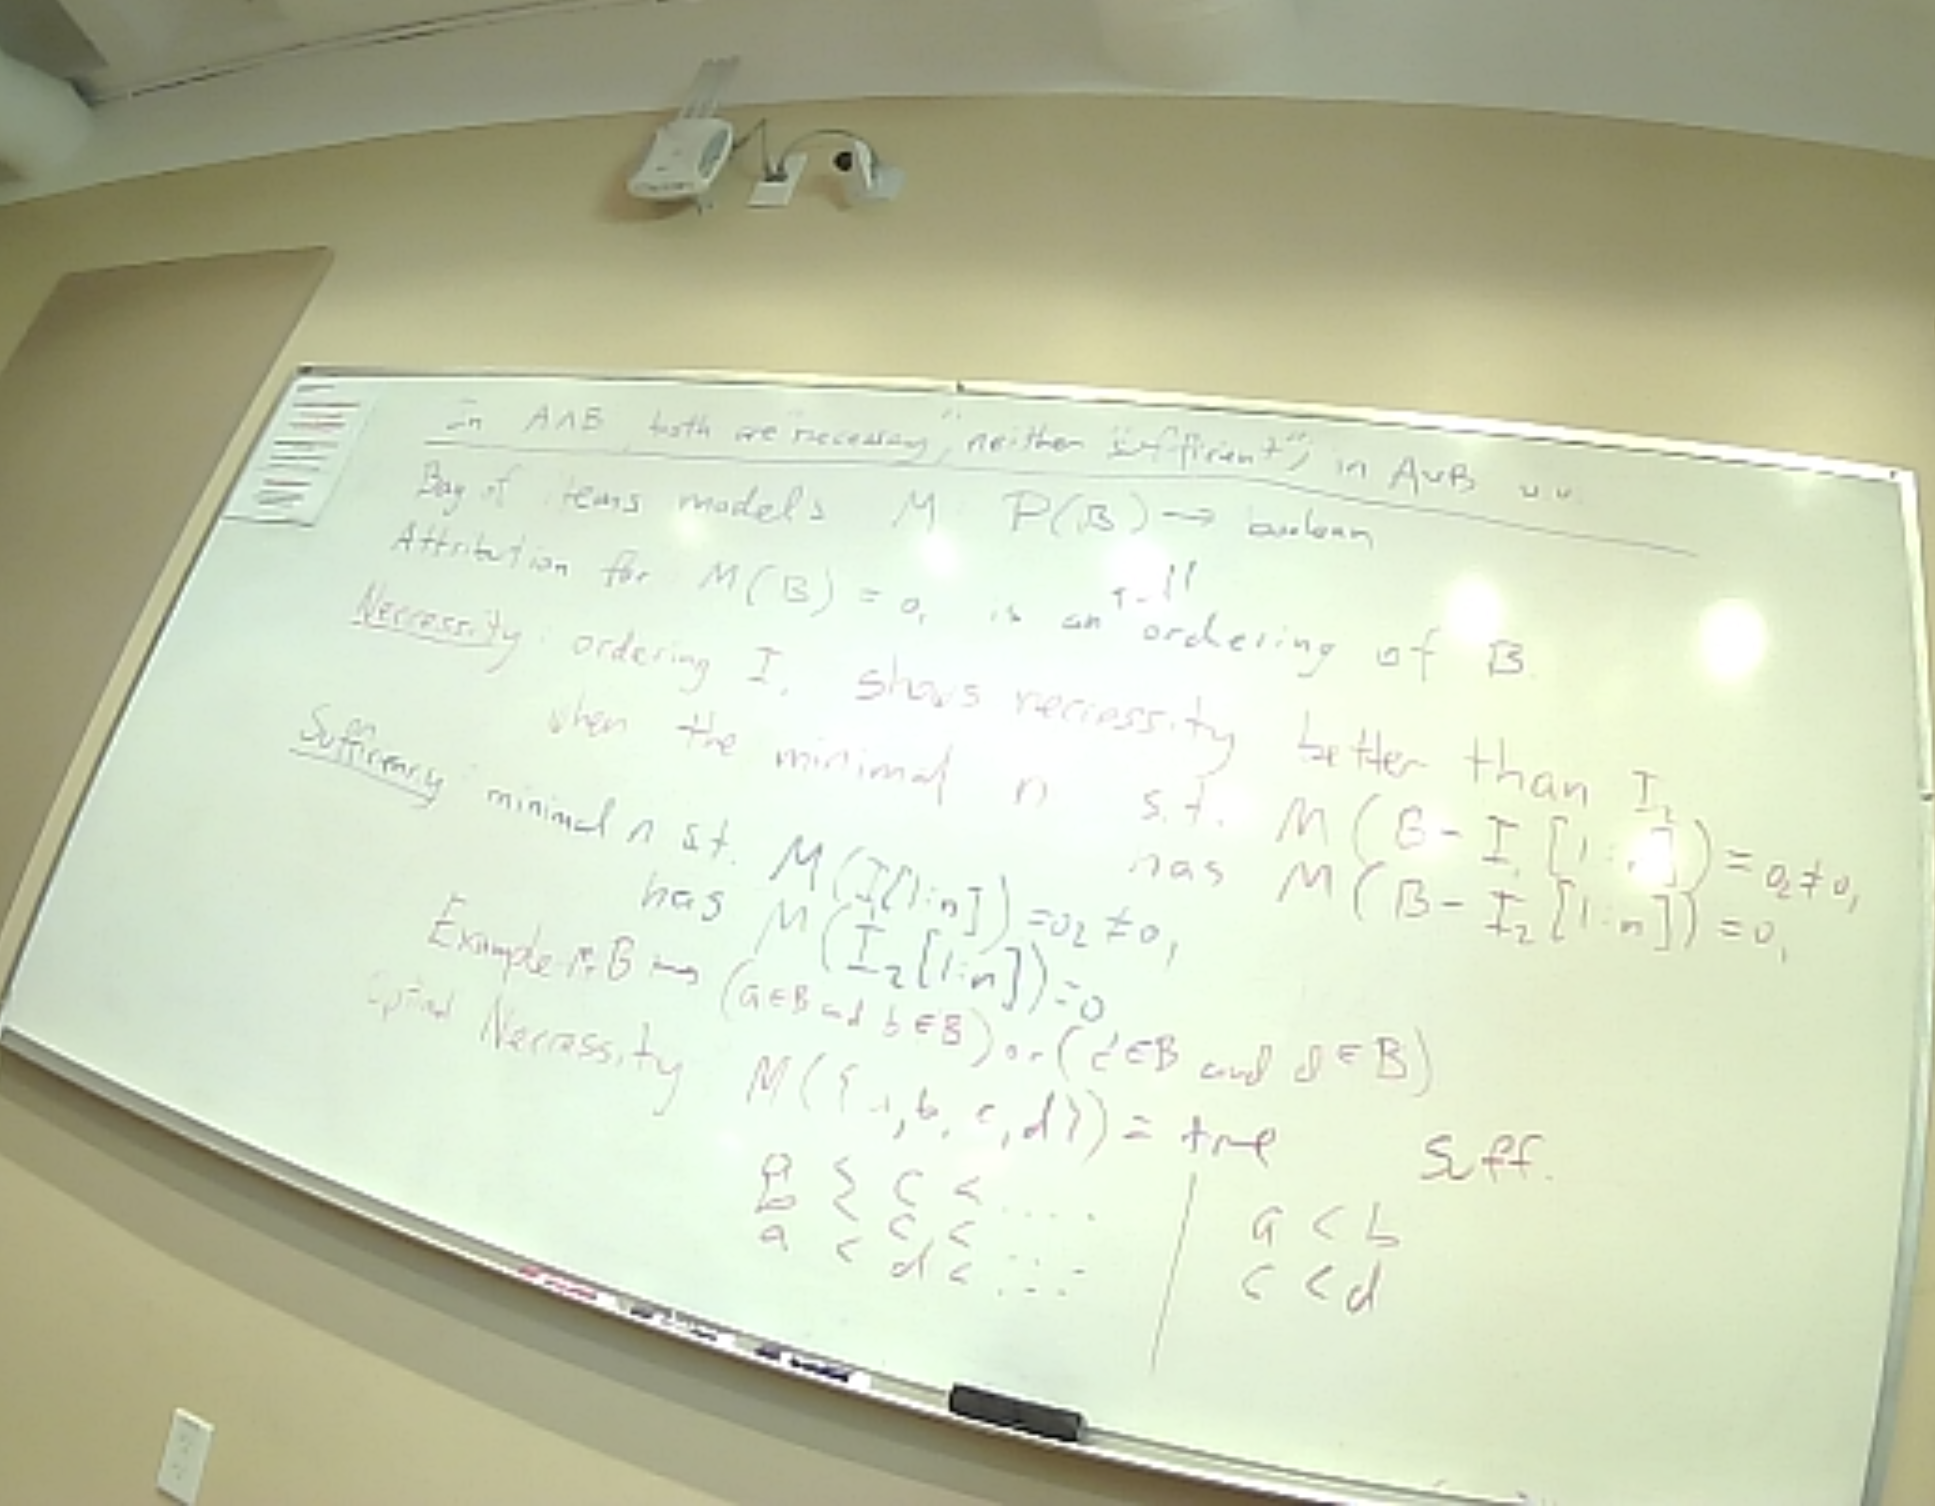 In A∧B both are "necessary", neither "sufficient"; in A∨B v.v.
Bag of items models M P(B) → boolean
Attribution for M(B) = o₁ is an ordering of B.
Necessity: ordering I₁ shows necessity better than I₂
when the minimal n s.t. M(B - I₁[1:n]) = o₂ ≠ o₁
has M(B - I₂[1:n]) = o₁
Sufficiency: minimal n s.t. M(I₁[1:n]) = o₂ ≠ o₁
has M(I₂[1:n]) = o
Example B ↦ (a∈B and b∈B) or (c∈B and d∈B)
Necessity M({a, b, c, d}) = true
Suff.
c < ....
b c < ...
a < d < ...
a < b
c < d